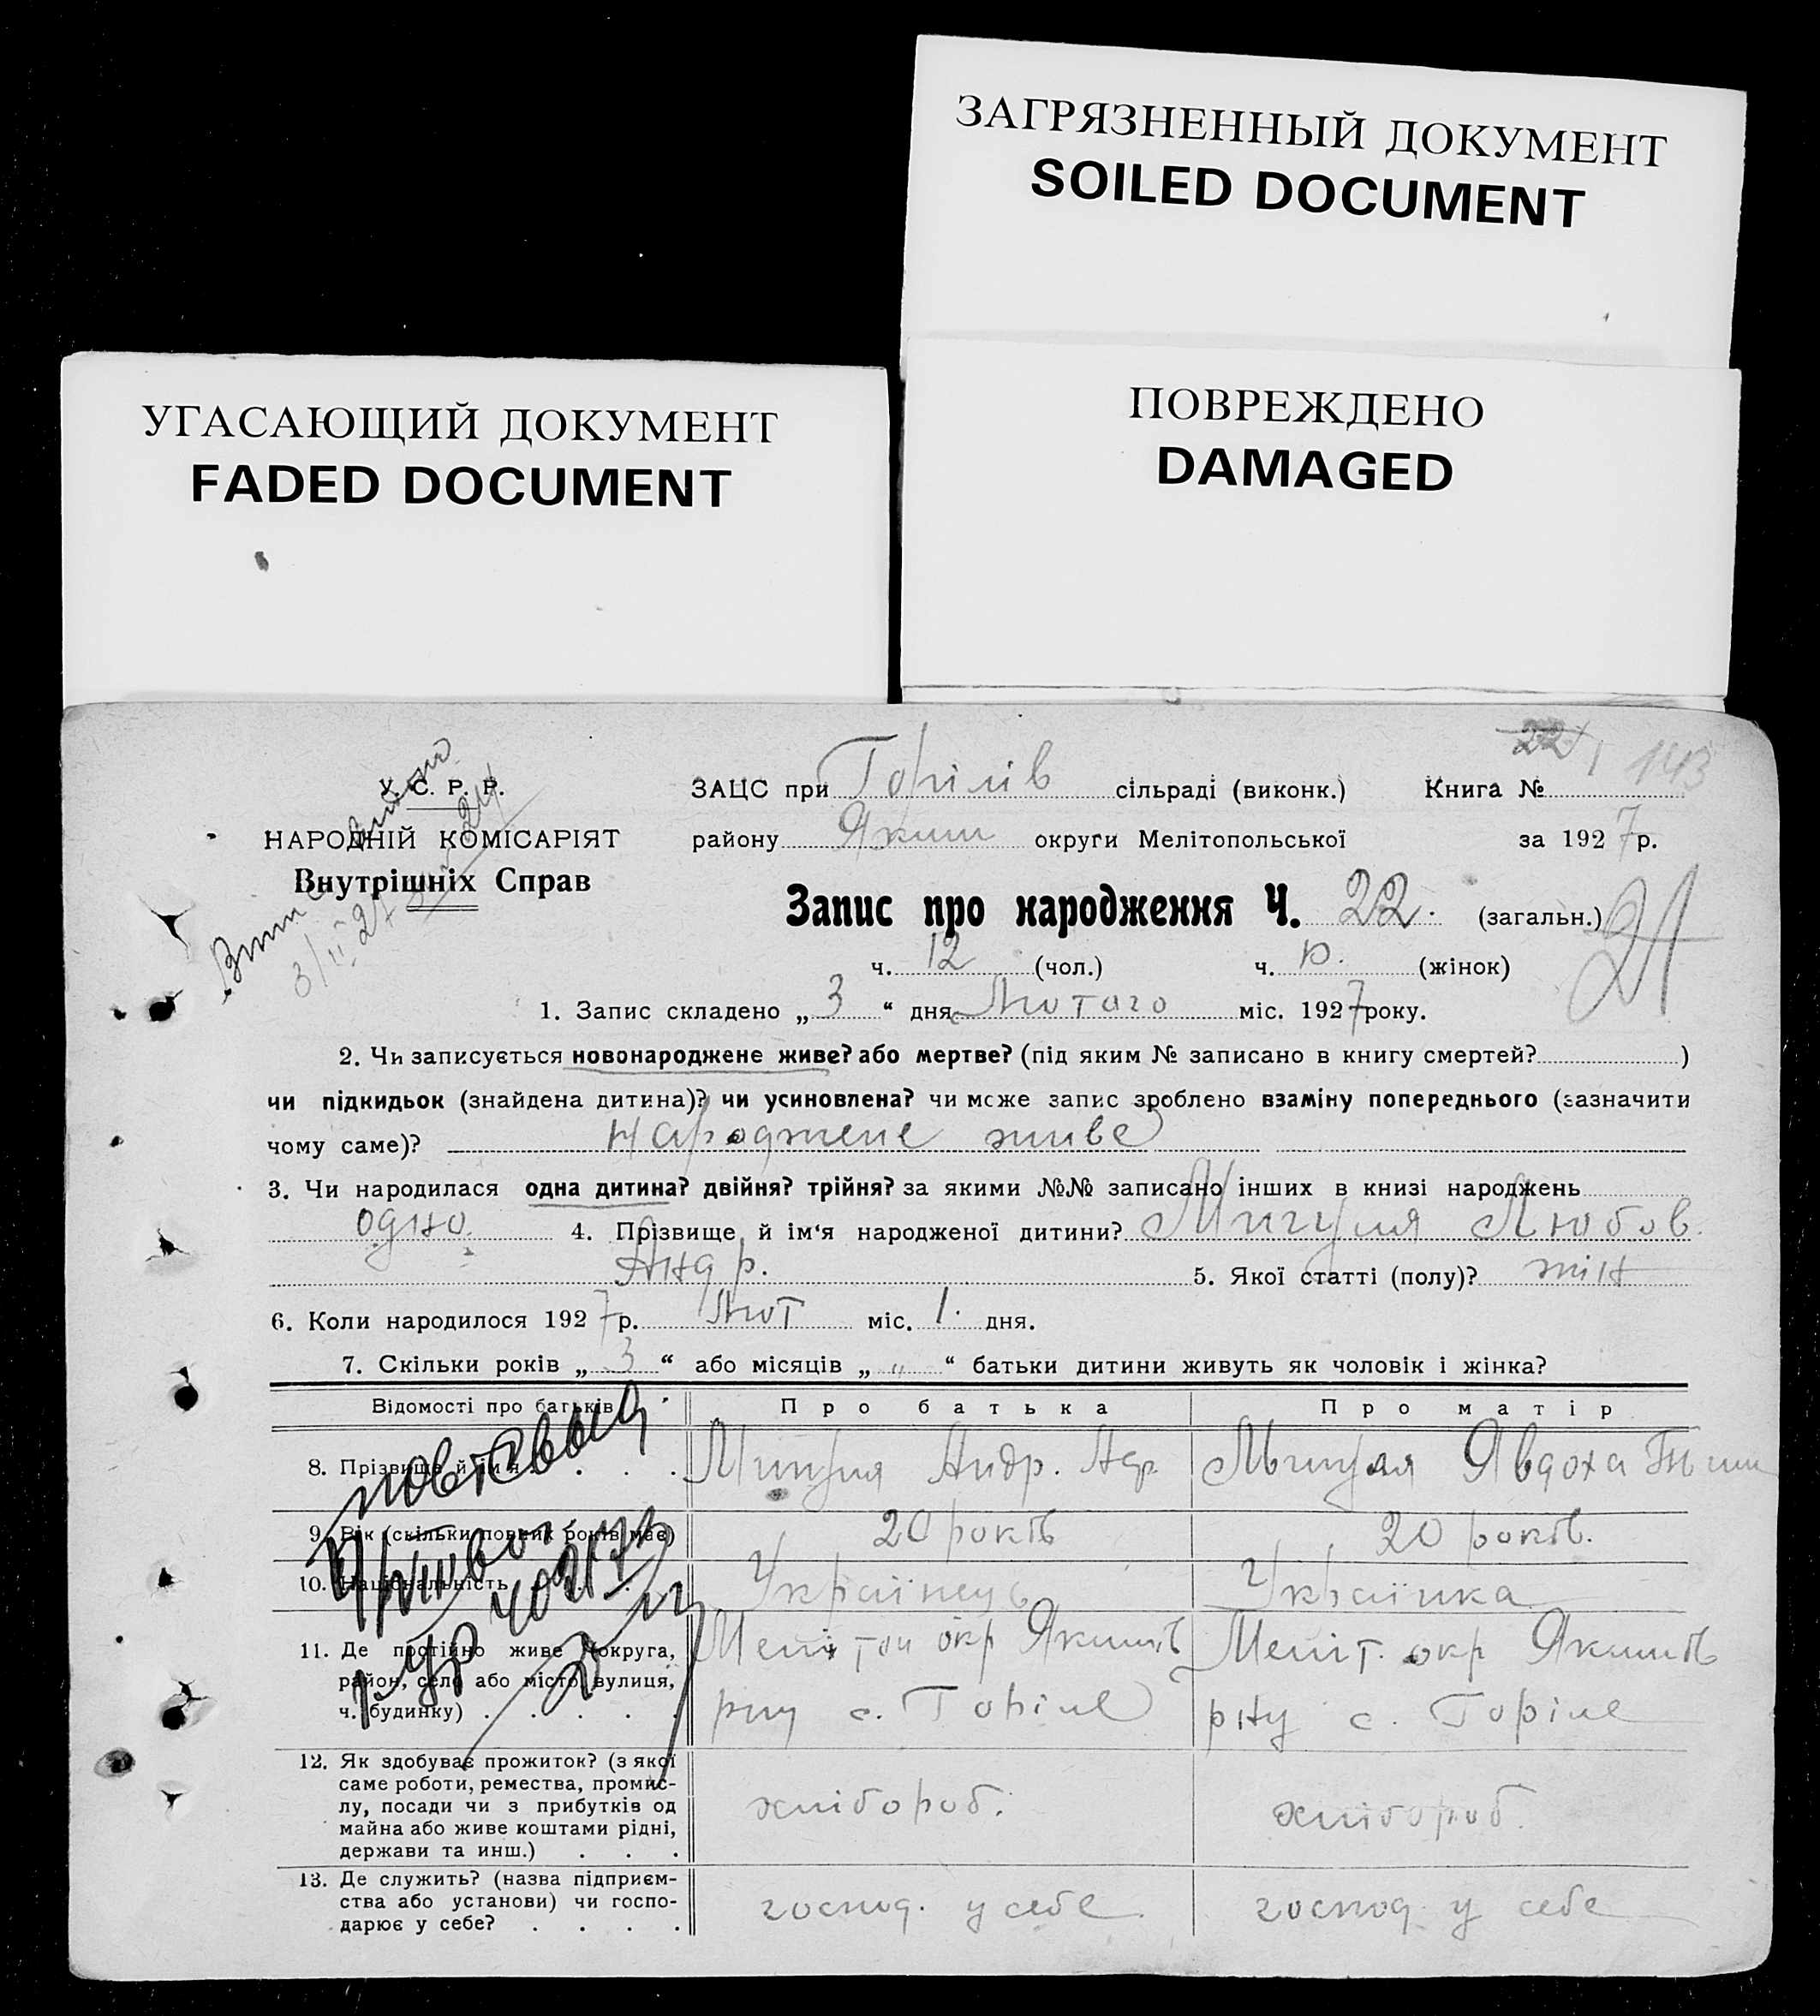 ЗАГРЯЗНЕННЫЙ ДОКУМЕНТ
SOILED DOCUMENT
УГАСАЮЩИЙ ДОКУМЕНТ
FADED DOCUMENT
ПОВРЕЖДЕНО
DAMAGED
22 143
У. С. Р. Р. ЗАЦС при Горілів сільраді (виконк.) Книга №
НАРОДНІЙ КОМІСАРІЯТ району Яким округи Мелітопольської за 1927 р.
Внутрішніх Справ
Запис про народження Ч. 22. (загальн.) 21
ч. 12 (чол.) ч. 10. (жінок)
1. Запис складено „ 3 “ дня Лютаго міс. 1927 року.
2. Чи записується новонароджене живе? або мертве? (під яким № записано в книгу смертей? )
чи підкидьок (знайдена дитина)? чи усиновлена? чи може запис зроблено взаміну попереднього (зазначити
чому саме)? народжене живе
3. Чи народилася одна дитина? двійня? трійня? за якими №№ записано інших в книзі народжень
одно. 4. Прізвище й ім‘я народженої дитини? Мигуля Любов
Андр. 5. Якої статті (полу)? жін
6. Коли народилося 1927 р. Лют міс. 1. дня.
7. Скільки років „ 3 “ або місяців „ „ “ батьки дитини живуть як чоловік і жінка?
Відомості про батьків Про батька Про матір
8. Прізвище й ім‘я . . . Мигуля Андр. Мигуля Явдоха
9. Вік (скільки повних років має) 20 років 20 років.
10. Національність Українець Українка
11. Де постійно живе (округа, Меліт окр Якимів Меліт. окр Якимів
район, село або місто, вулиця, рну с. Горіле рну с. Горіле
ч. будинку) . . . . .
12. Як здобуває прожиток? (з якої
саме роботи, ремества, промис-
лу, посади чи з прибутків од хлібороб. хлібороб.
майна або живе коштами рідні,
держави та инш.) . . .
13. Де служить? (назва підприєм-
ства або установи) чи госпо- господ. у себе господ у себе
дарює у себе? . . . .